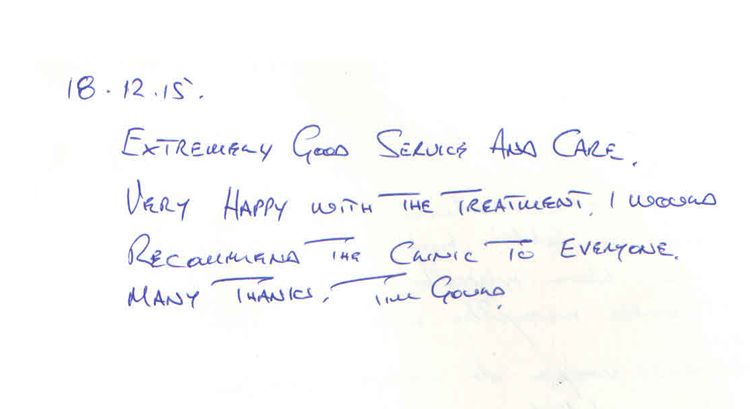 18.12.15.
EXTREMELY GOOD SERVICE AND CARE.
VERY HAPPY WITH THE TREATMENT. I WOULD
RECOMMEND THE CLINIC TO EVERYONE.
MANY THANKS. TIM GOULD.